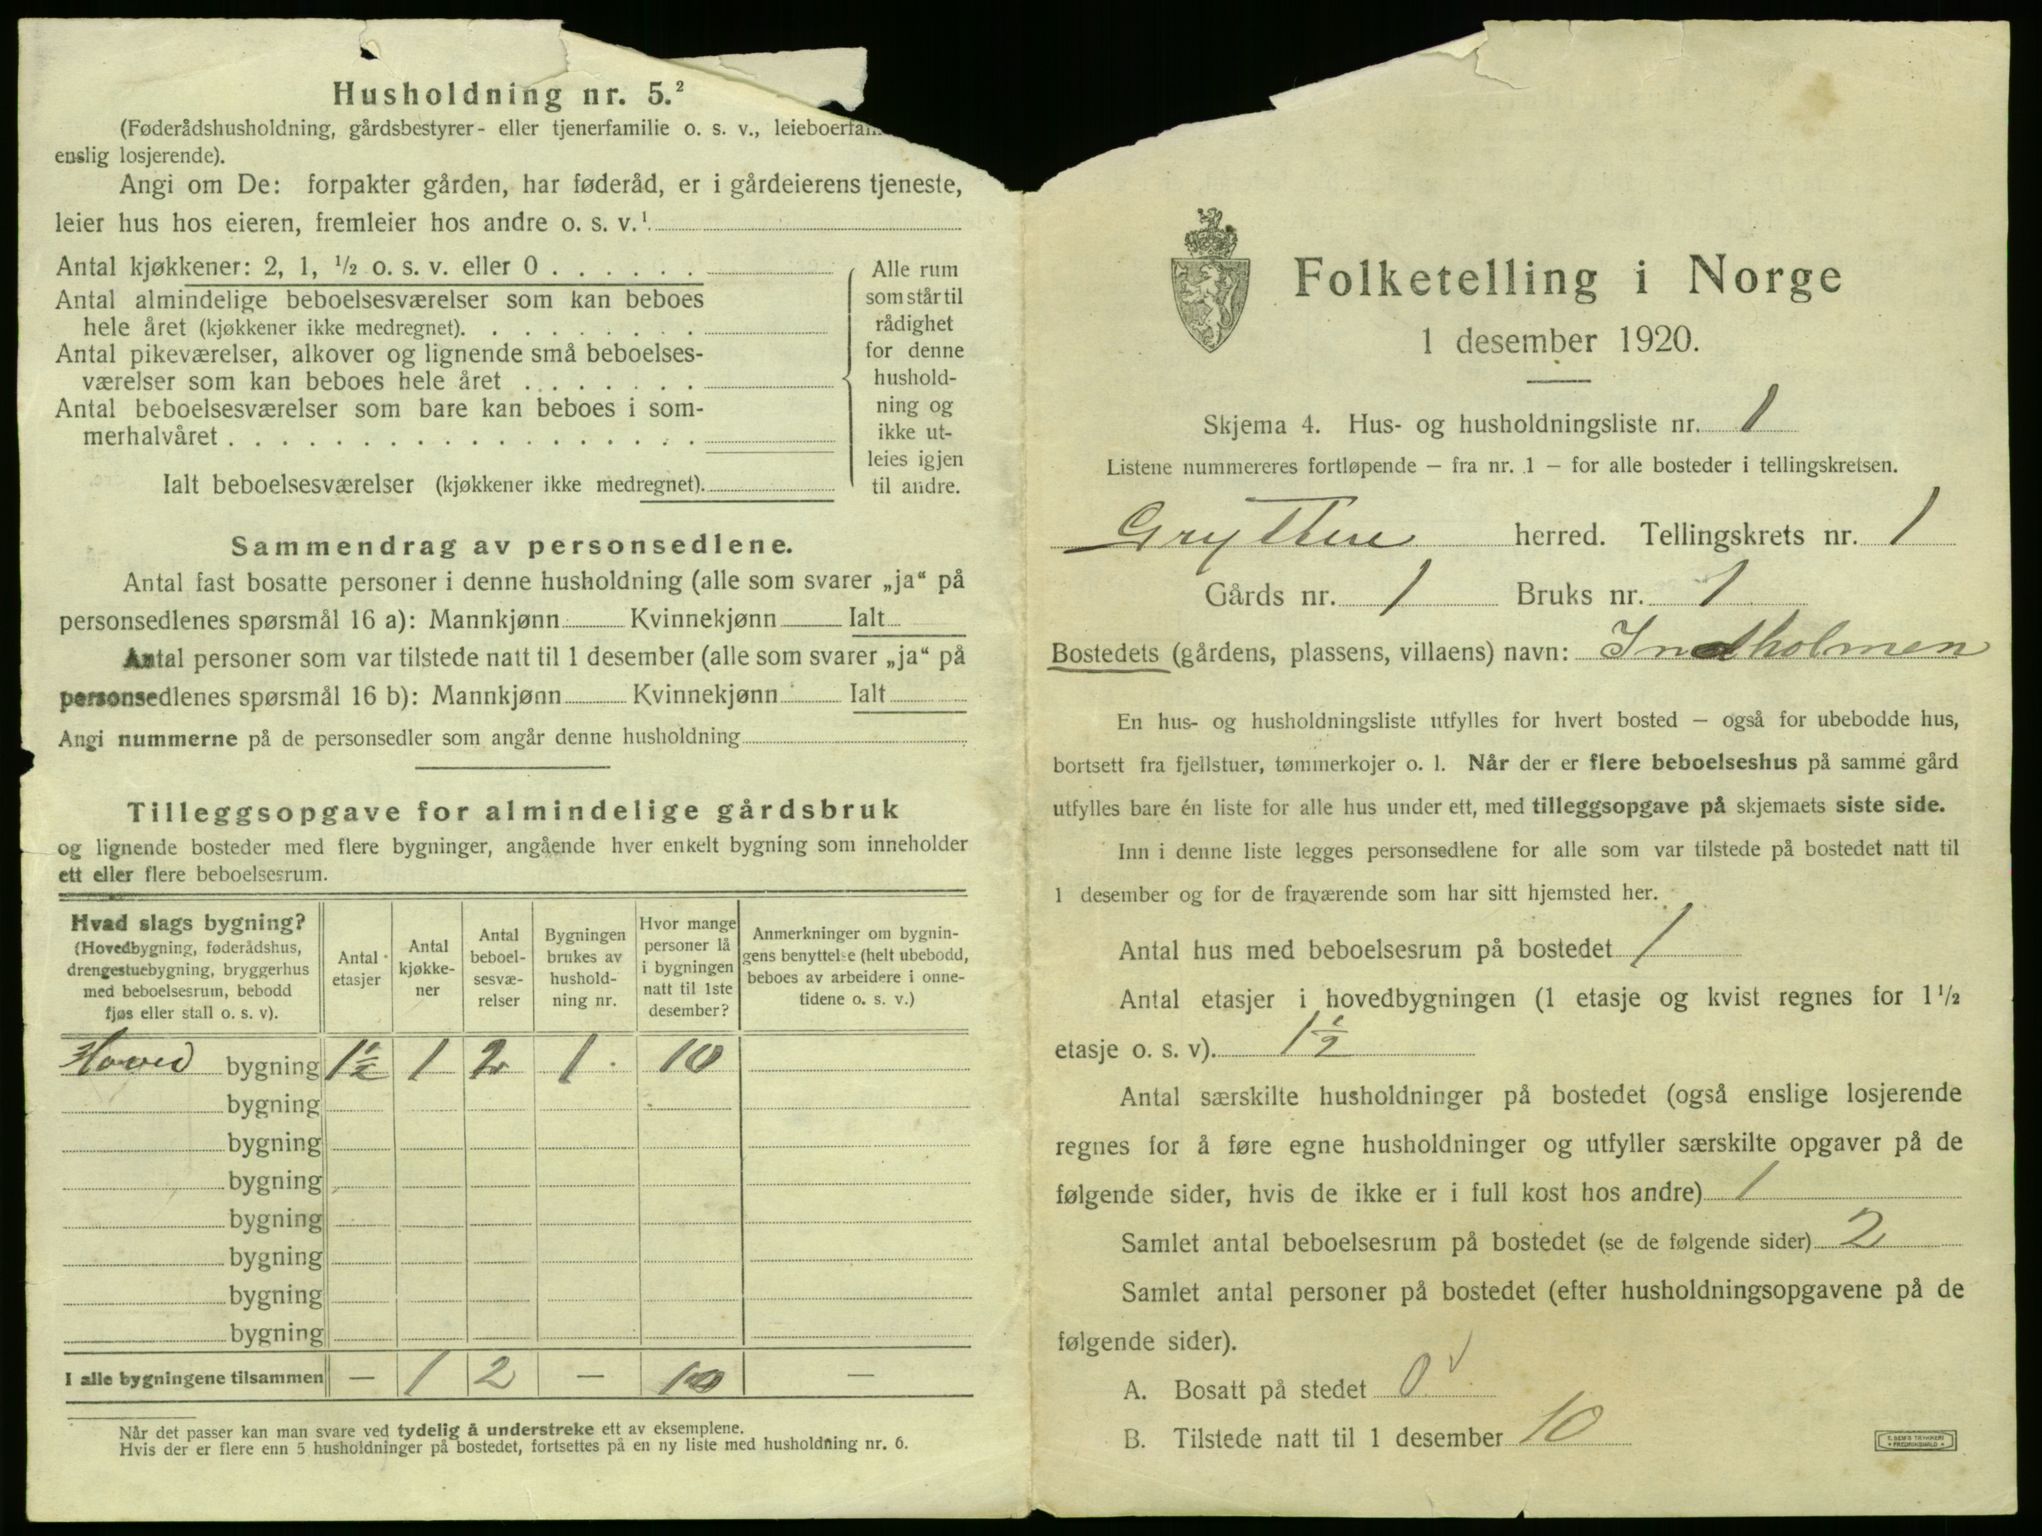 Husholdning nr. 5.²
(Føderådshusholdning, gårdsbestyrer- eller tjenerfamilie o. s. v., leieboerfam
enslig losjerende).
Angi om De: forpakter gården, har føderåd, er i gårdeierens tjeneste,
leier hus hos eieren, fremleier hos andre o. s. v.¹
Antal kjøkkener: 2, 1, ½ o. s. v. eller 0
Antal almindelige beboelsesværelser som kan beboes
hele året (kjøkkener ikke medregnet).
Antal pikeværelser, alkover og lignende små beboelses-
værelser som kan beboes hele året
Antal beboelsesværelser som bare kan beboes i som-
merhalvåret
Ialt beboelsesværelser (kjøkkener ikke medregnet).
Alle rum
som står til
rådighet
for denne
hushold-
ning og
ikke ut-
leies igjen
til andre.
Sammendrag av personsedlene.
Antal fast bosatte personer i denne husholdning (alle som svarer „ja“ på
personsedlenes spørsmål 16 a): Mannkjønn Kvinnekjønn Ialt
Antal personer som var tilstede natt til 1 desember (alle som svarer „ja“ på
personsedlenes spørsmål 16 b): Mannkjønn Kvinnekjønn Ialt
Angi nummerne på de personsedler som angår denne husholdning
Tilleggsopgave for almindelige gårdsbruk
og lignende bosteder med flere bygninger, angående hver enkelt bygning som inneholder
ett eller flere beboelsesrum.
Hvad slags bygning?
(Hovedbygning, føderådshus,
drengestuebygning, bryggerhus
med beboelsesrum, bebodd
fjøs eller stall o. s. v).
Antal
etasjer
Antal
kjøkke-
ner
Antal
beboel-
sesvæ-
relser
Bygningen
brukes av
hushold-
ning nr.
Hvor mange
personer lå
i bygningen
natt til 1ste
desember?
Anmerkninger om bygnin-
gens benyttelse (helt ubebodd,
beboes av arbeidere i onne-
tidene o. s. v.)
Hoved bygning 1½ 1 2 1 10
bygning
bygning
bygning
bygning
bygning
bygning
bygning
I alle bygningene tilsammen — 1 2 — 10 —
Når det passer kan man svare ved tydelig å understreke ett av eksemplene.
Hvis der er flere enn 5 husholdninger på bostedet, fortsettes på en ny liste med husholdning nr. 6.
Folketelling i Norge
1 desember 1920.
Skjema 4. Hus- og husholdningsliste nr. 1
Listene nummereres fortløpende — fra nr. 1 — for alle bosteder i tellingskretsen.
Grytten herred. Tellingskrets nr. 1
Gårds nr. 1 Bruks nr. 1
Bostedets (gårdens, plassens, villaens) navn: Indholmen
En hus- og husholdningsliste utfylles for hvert bosted — også for ubebodde hus,
bortsett fra fjellstuer, tømmerkojer o. l. Når der er flere beboelseshus på samme gård
utfylles bare én liste for alle hus under ett, med tilleggsopgave på skjemaets siste side.
Inn i denne liste legges personsedlene for alle som var tilstede på bostedet natt til
1 desember og for de fraværende som har sitt hjemsted her.
Antal hus med beboelsesrum på bostedet 1
Antal etasjer i hovedbygningen (1 etasje og kvist regnes for 1½
etasje o. s. v). 1½
Antal særskilte husholdninger på bostedet (også enslige losjerende
regnes for å føre egne husholdninger og utfyller særskilte opgaver på de
følgende sider, hvis de ikke er i full kost hos andre) 1
Samlet antal beboelsesrum på bostedet (se de følgende sider) 2
Samlet antal personer på bostedet (efter husholdningsopgavene på de
følgende sider).
A. Bosatt på stedet 0 √
B. Tilstede natt til 1 desember 10